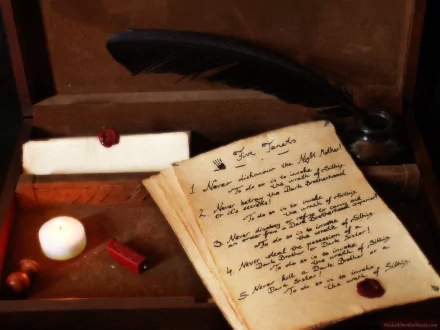 Five Tenets
1. Never dishonour the Night Mother!
To do so is to invoke
the wrath of Sithis.
2. Never betray the Dark Brotherhood
or its secrets!
To do so is to invoke
the wrath of Sithis.
3. Never disobey or refuse carry out
an order from a Dark Brotherhood superior!
To do so is to invoke
the wrath of Sithis.
4. Never steal the possession of a
Dark Brother or Dark Sister!
To do so is to invoke
the wrath of Sithis.
5. Never kill a Dark Brother or
Dark Sister!
To do so is to invoke
the wrath of Sithis.